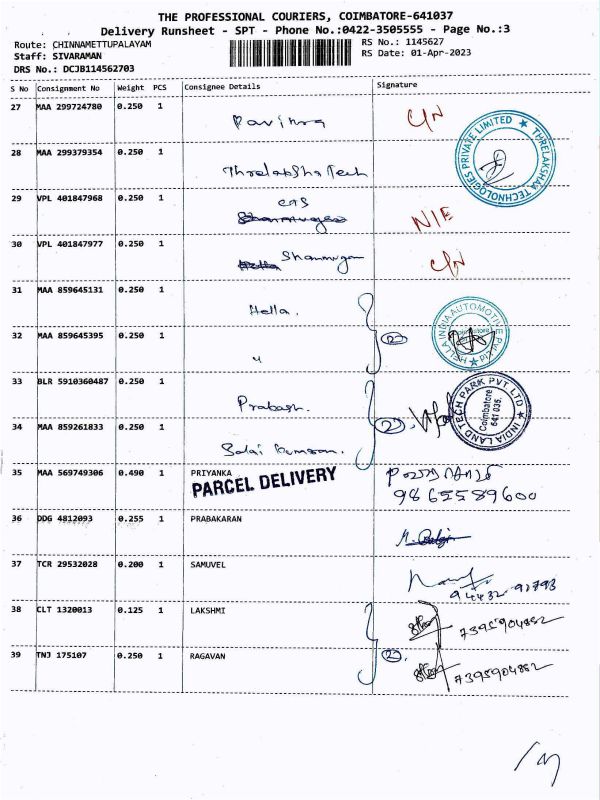 THE PROFESSIONAL COURIERS, COIMBATORE-641037
Delivery Runsheet - SPT - Phone No.:0422-3505555 - Page No.:3
Route: CHINNAMETTUPALAYAM
RS No.: 1145627
Staff: SIVARAMAN
RS Date: 01-Apr-2023
DRS No.: DCJB114562703
S No Consignment No Weight PCS Consignee Details Signature
27 MAA 299724780 0.250 1 Pavithra C/N
28 MAA 299379354 0.250 1 Threlaksha Tech
THRELAKSHAA TECHNOLOGIES PRIVATE LIMITED
29 VPL 401847968 0.250 1 N/E
30 VPL 401847977 0.250 1 Shanmugam C/N
31 MAA 859645131 0.250 1 Hella.
HELLA INDIA AUTOMOTIVE PVT LTD
32 MAA 859645395 0.250 1 " (2)
33 BLR 5910360487 0.250 1 Prakash.
INDIA LAND TECH PARK PVT LTD
Coimbatore
641 035.
34 MAA 859261833 0.250 1 (2)
35 MAA 569749306 0.490 1 PRIYANKA
PARCEL DELIVERY
9865589600
36 DDG 4812093 0.255 1 PRABAKARAN
37 TCR 29532028 0.200 1 SAMUVEL
94432-92793
38 CLT 1320013 0.125 1 LAKSHMI 7395904852
39 TNJ 175107 0.250 1 RAGAVAN (2) 7395904852